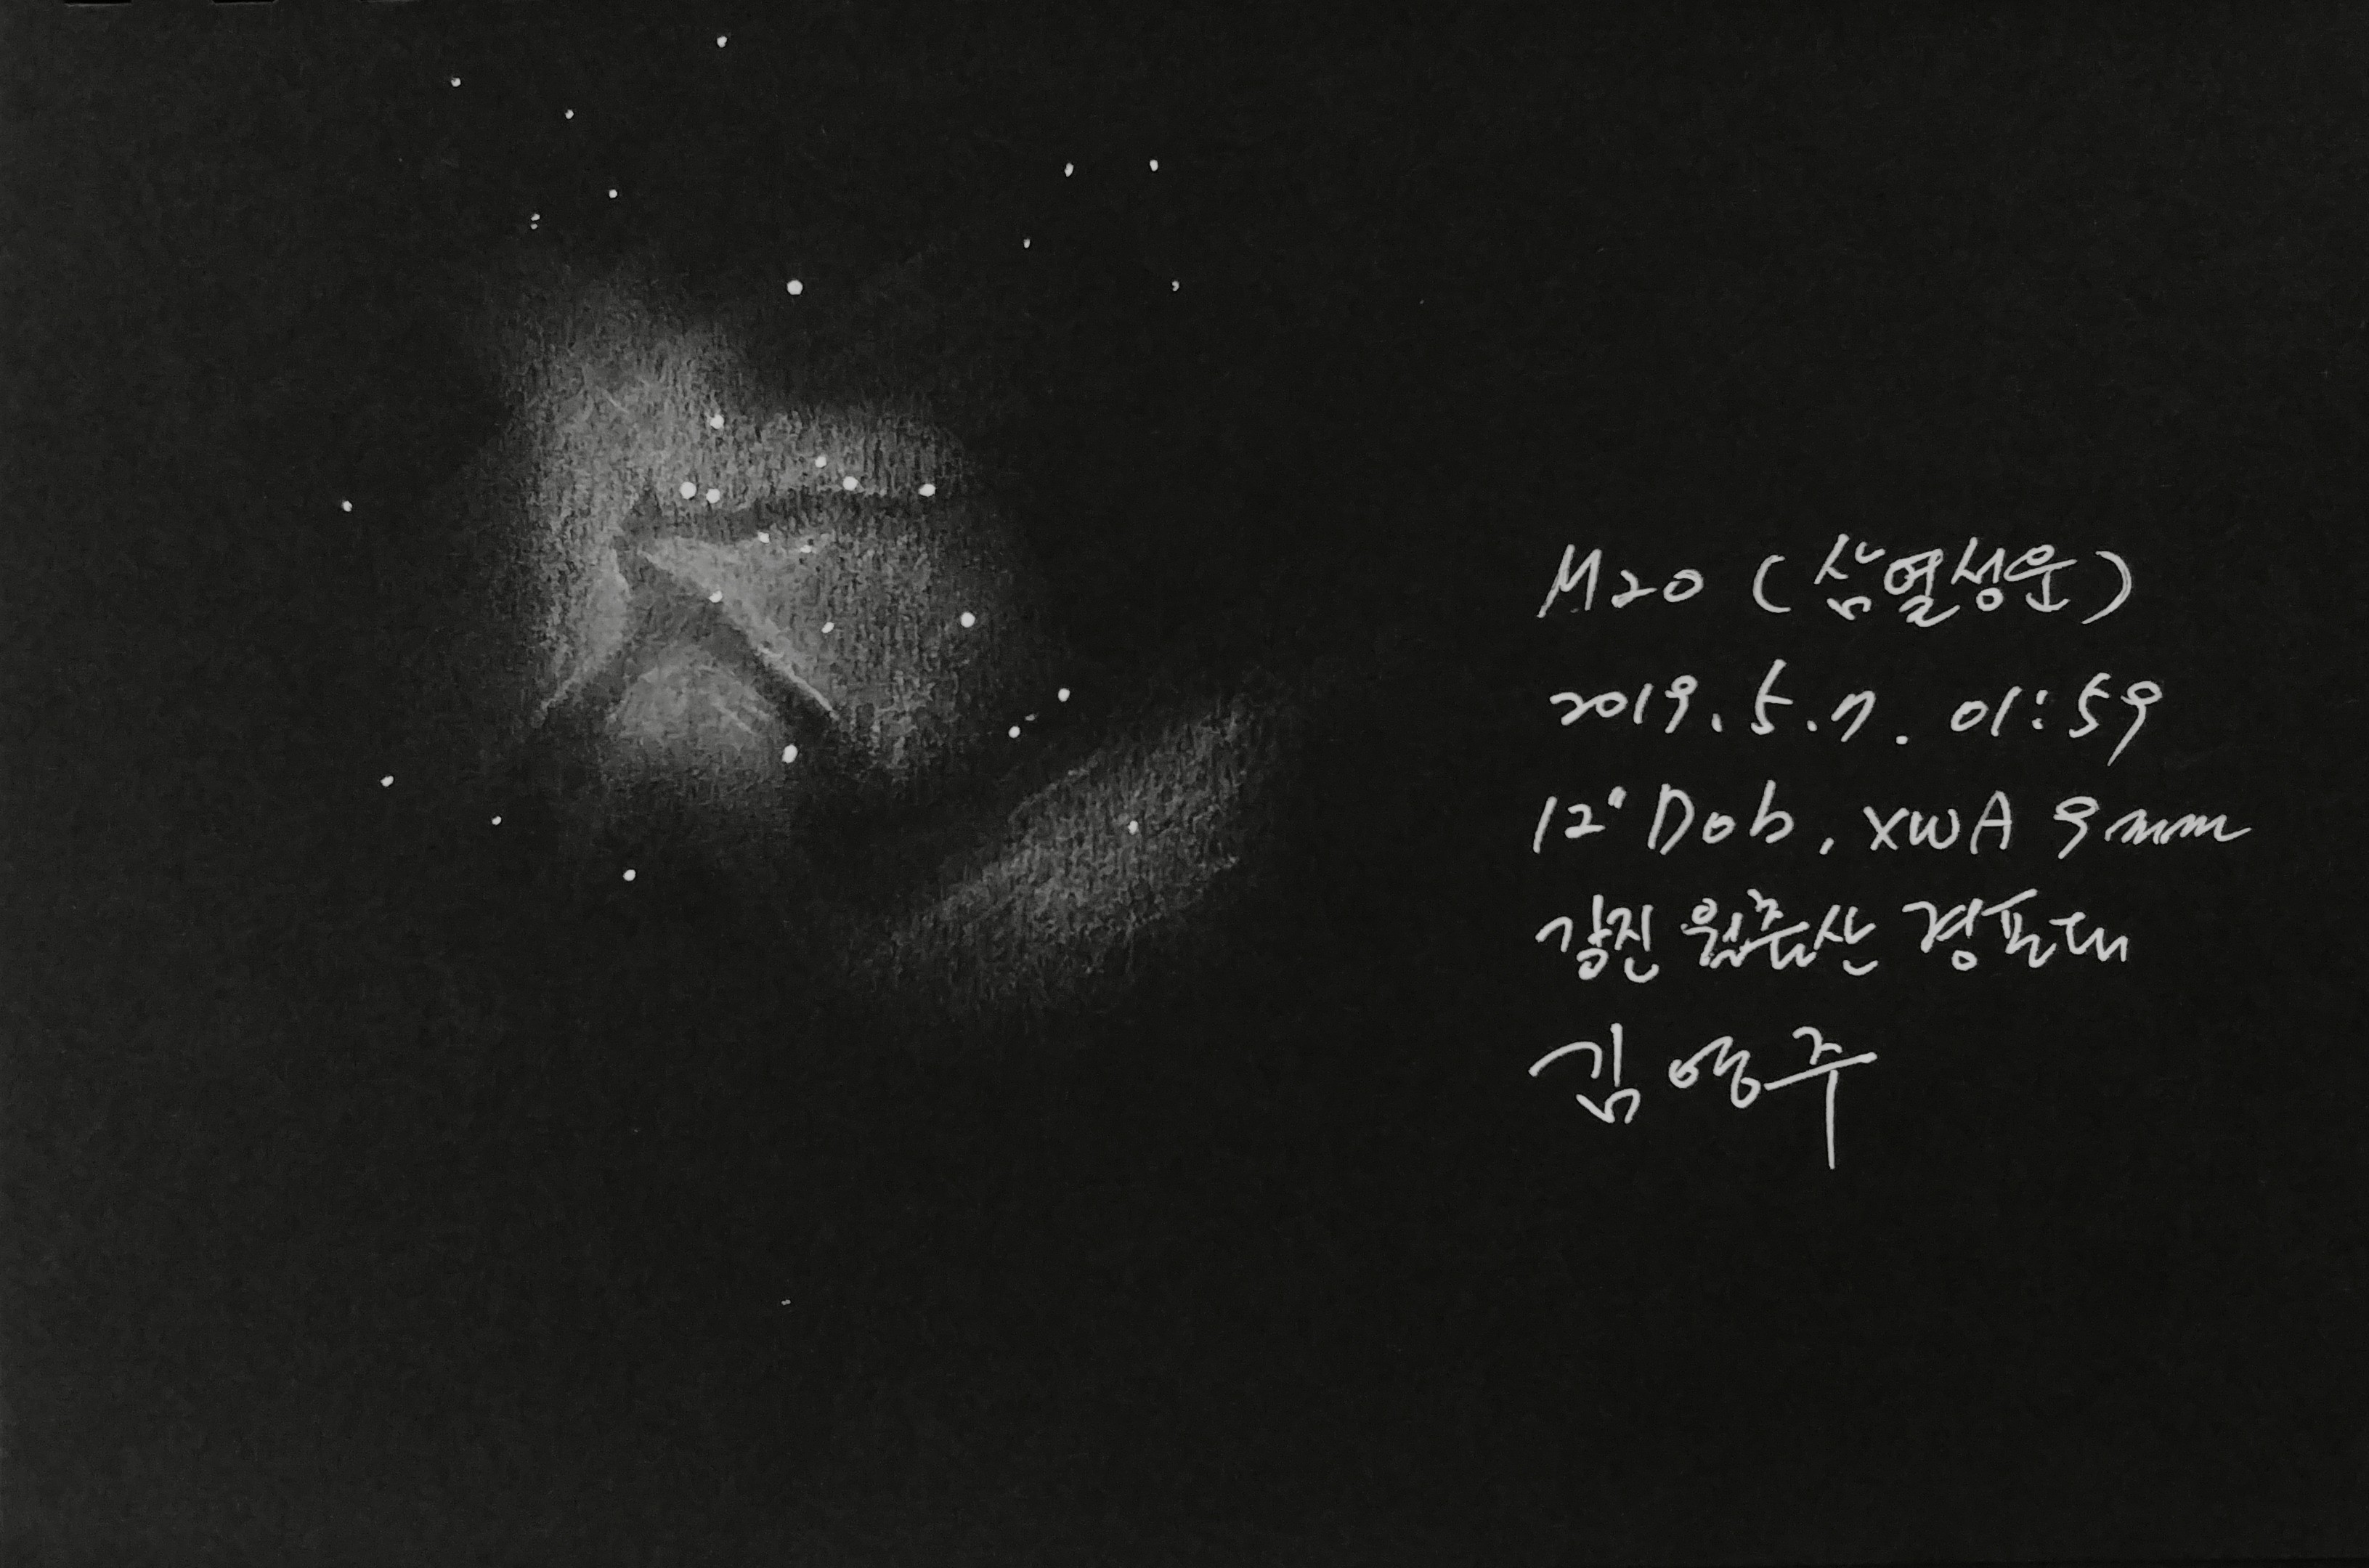 M20 (삼열성운)
2019. 5. 7. 01:59
12" Dob, XWA 9mm
강진 월출산 경포대
김영주